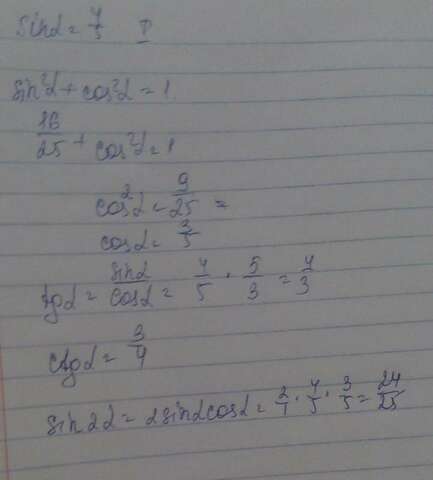 sinα = 4/5 I
sin²α + cos²α = 1
16/25 + cos²α = 1
cos²α = 9/25 =
cosα = 3/5
tgα = sinα/cosα = 4/5 · 5/3 = 4/3
ctgα = 3/4
sin2α = 2sinαcosα = 2/1 · 4/5 · 3/5 = 24/25